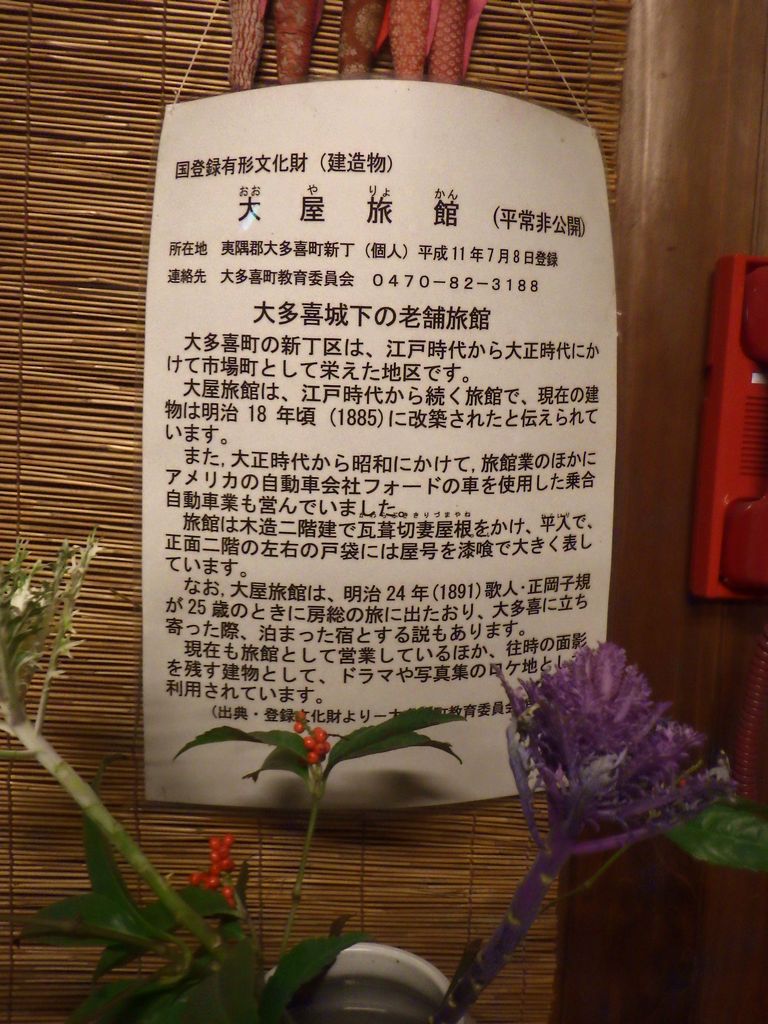 国登録有形文化財(建造物)
おお や りょ かん
大 屋 旅 館 (平常非公開)
所在地 夷隅郡大多喜町新丁(個人)平成11年7月8日登録
連絡先 大多喜町教育委員会 0470-82-3188
大多喜城下の老舗旅館
大多喜町の新丁区は、江戸時代から大正時代にか
けて市場町として栄えた地区です。
大屋旅館は、江戸時代から続く旅館で、現在の建
物は明治 18 年頃 (1885)に改築されたと伝えられて
います。
また,大正時代から昭和にかけて,旅館業のほかに
アメリカの自動車会社フォードの車を使用した乗合
自動車業も営んでいました。
旅館は木造二階建で瓦葺切妻屋根をかけ、平入で、
正面二階の左右の戸袋には屋号を漆喰で大きく表し
ています。
なお,大屋旅館は、明治 24 年(1891)歌人・正岡子規
が 25 歳のときに房総の旅に出たおり、大多喜に立ち
寄った際、泊まった宿とする説もあります。
現在も旅館として営業しているほか、往時の面影
を残す建物として、ドラマや写真集のロケ地とし
利用されています。
(出典・登録文化財より－大 町教育委員会